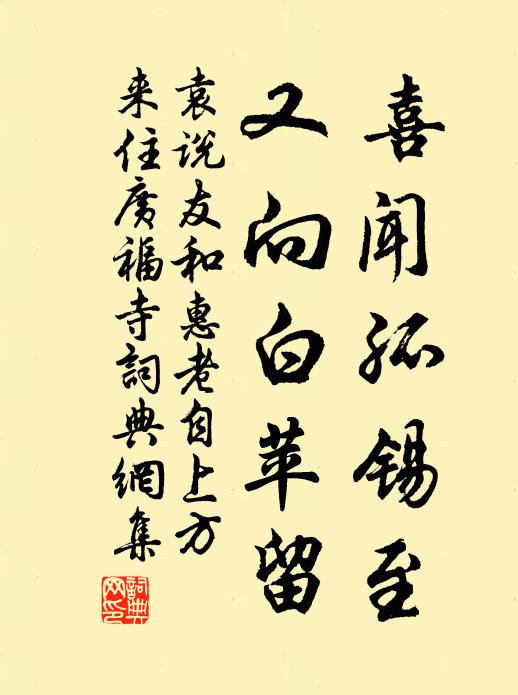 喜闻孤锡至
又向白苹留
袁说友和惠老自上方
来住广福寺词典網集
詞典网印